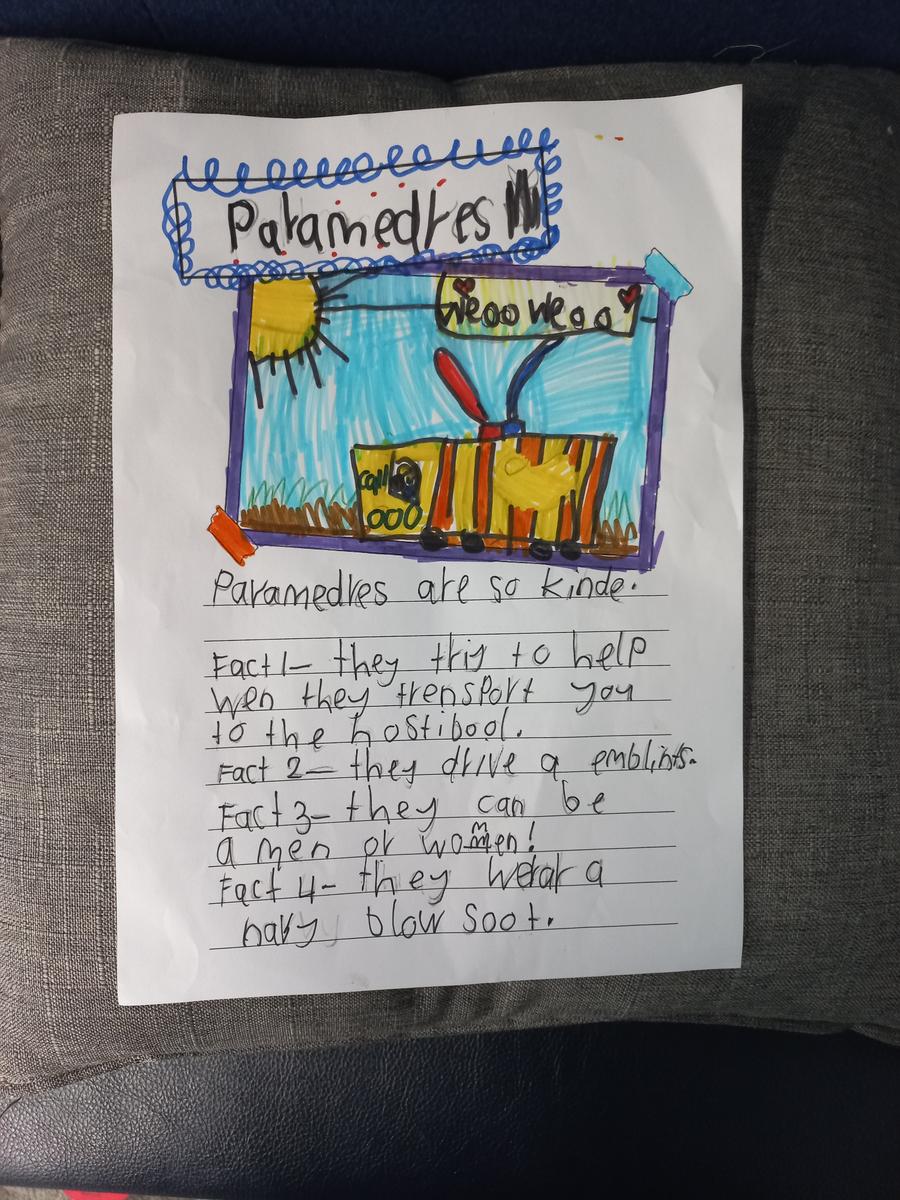 Paramedres
weoo weoo
call
000
Paramedres are so kinde.
Fact 1- they triy to help
wen they trensport you
to the hostibool.
Fact 2- they drive a emblints.
Fact 3- they can be
a men or women!
Fact 4- they wear a
navy blow soot.